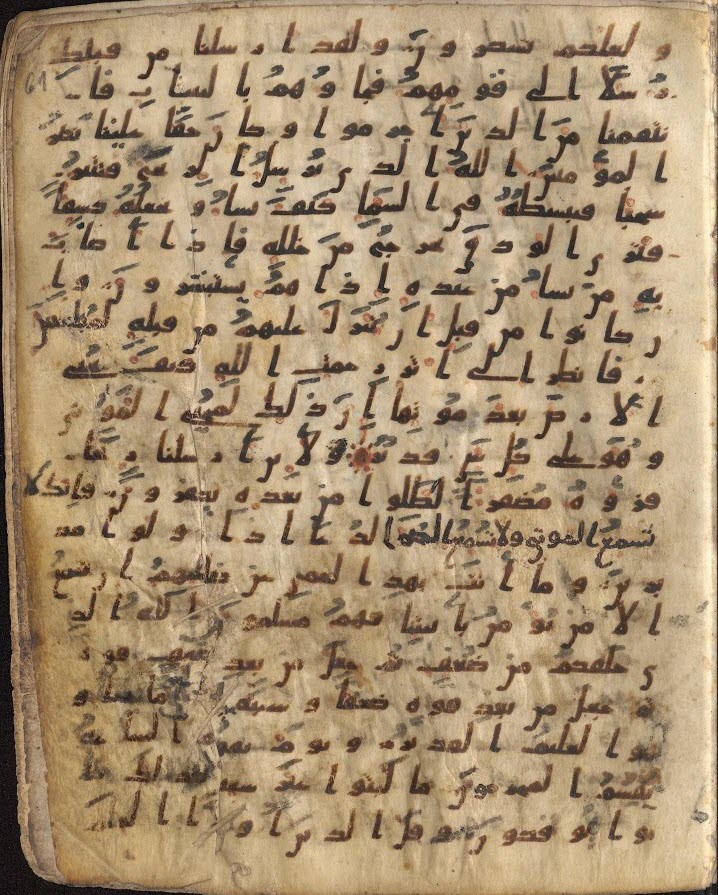 و لعلكم تشكرون ولقد ارسلنا من قبلك
رسلا الى قومهم فجاوهم بالبينت فا
نتقمنا من الذين اجرموا وكان حقا علينا نصر
المومنين الله الذى يرسل الريح فتثير
سحبا فيبسطه فى السما كيف يشا ويجعله كسفا
فترى الودق يخرج من خلله فاذا اصاب
به من يشا من عبده اذا هم يستبشرون وا
ن كانوا من قبل ان ينزل عليهم من قبله لمبلسين
فانظر الى اثر رحمت الله كيف يحى
الارض بعد موتها ان ذلك لمحى الموتى
وهو على كل شى قدير ولئن ارسلنا ريحا
فراوه مصفرا لظلوا من بعده يكفرون فانك لا
تسمع الموتى ولا تسمع الصم الدعا اذا ولوا مد
برين وما انت بهد العمى عن ضللتهم ان تسمع
الا من يومن بايتنا فهم مسلمون الله الذ
ى خلقكم من ضعف ثم جعل من بعد ضعف قو
ة ثم جعل من بعد قوة ضعفا وشيبة يخلق ما يشا و
هو العليم القدير ويوم تقوم الساعة
يقسم المجرمون ما لبثوا غير ساعة كذلك كا
نوا يوفكون وقال الذين اوتوا العلم